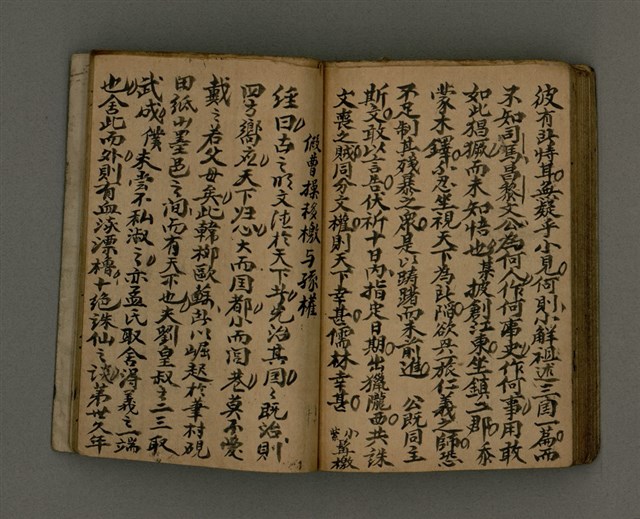 彼有所恃耳無疑乎小見何則小解祖述三国一篇而
不如司馬昌黎文公為何人作何事史作何事用敢
如此猖獗而未知悟也某披創江東坐鎮二郡忝
蒙木鐸不忍坐視天下為此陷欲興一旅仁義之師恐
不足制其殘暴之衆是以躊躇而未前進 公既同主
斯文敢以言告伏祈十日內指定日期出獵隴西共誅
文喪之賊同分文權則天下幸甚儒林幸甚 小髯檄
假曹操移檄与孫權
経曰古之明文法於天下者先治其国之既治則
四方嚮応天下归心大而国都小而闾巷莫不愛
戴之若父母矣此韓柳歐蘇所以崛起於筆村硯
田紙山墨邑之间而有天下也夫劉皇叔之二三取
武成僕未尝不私淑之亦孟氏取舍得義之一端
也舍此而外則有血流漂櫓十絶誅仙之談第世久年